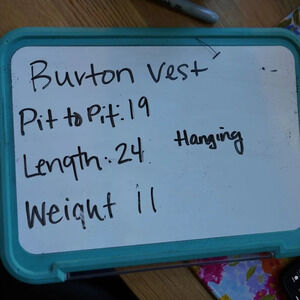 Burton Vest
Pit to Pit: 19
Length: 24 Hanging
Weight 11